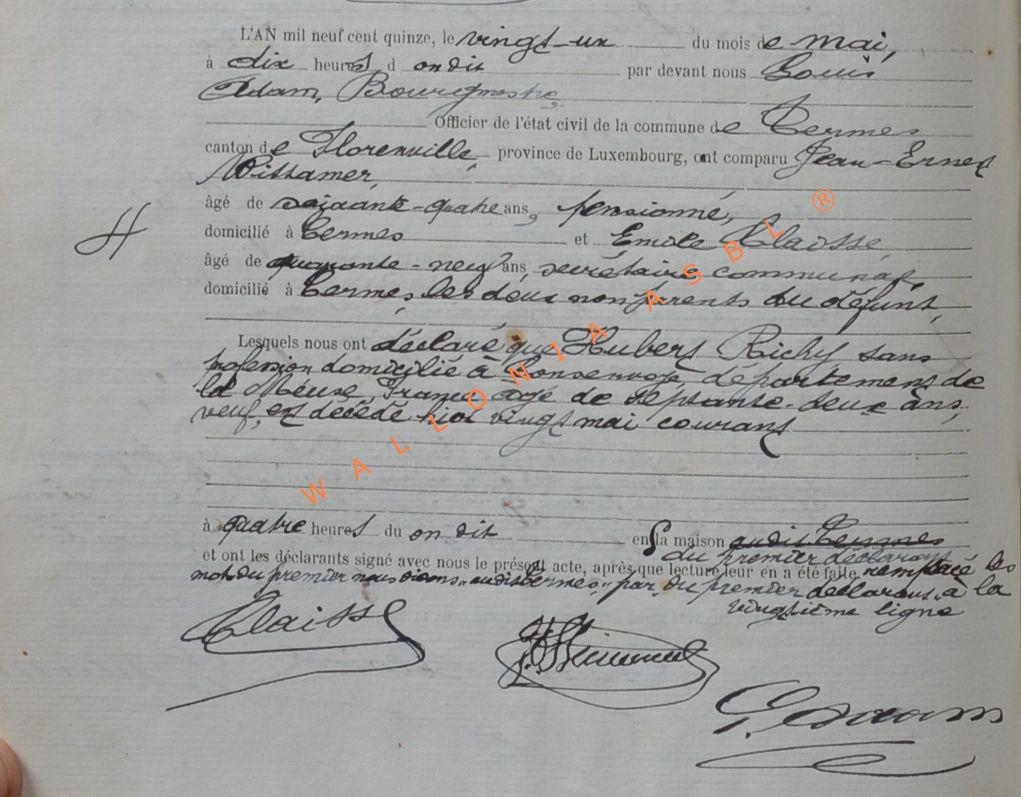 L'AN mil neuf cent quinze, le vingt-un du mois de mai,
à dix heures d on dit par devant nous Louis
Adam, Bourgmestre,
Officier de l'état civil de la commune de Termes
canton de Florenville, province de Luxembourg, ont comparu Jean-Ernest
âgé de soixante-quatre ans, pensionné,
domicilié à Termes et Emile Claisse,
âgé de quarante-neuf ans, secrétaire communal,
domicilié à Termes, les deux non parents du défunt,
Lesquels nous ont déclaré que Hubert Richy sans
profession domicilié à Consenvoye, département de
la Meuse, France âgé de septante-deux ans,
veuf, est décédé hier vingt mai courant
à quatre heures du on dit en la maison audit Termes
du premier déclarant
et ont les déclarants signé avec nous le présent acte, après que lecture leur en a été faite remplacé les
mot du premier nous disons "audit Termes" par "du premier déclarant" à la
vingtième ligne
H
Claisse
L. Adam
WALLONIA ASBL ®